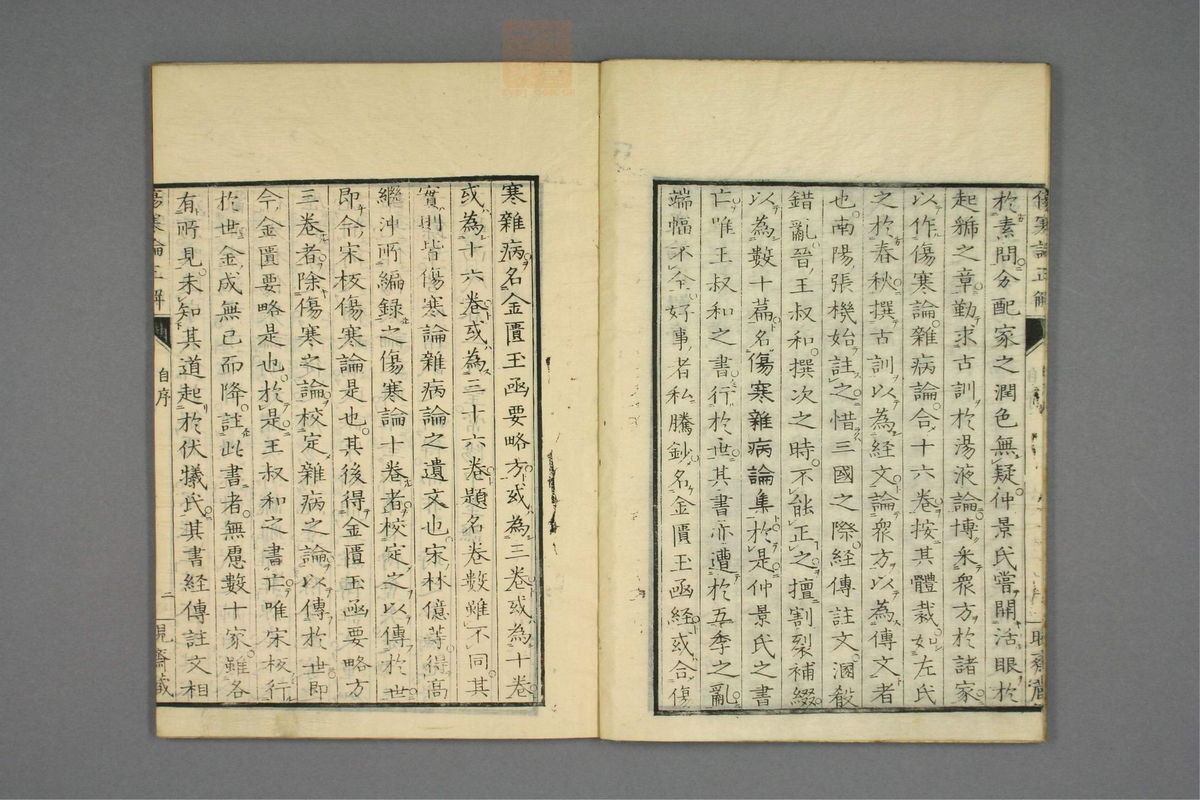 於素問分配家之潤色無疑仲景氏嘗開活眼於
起猕之章勤求古訓於湯液論博釆衆方於諸家
以作傷寒論雜病論合十六卷按其體裁如左氏
之於春秋撰古訓以為經文論衆方以為傳文者
也南陽張機始註之惜三國之際經傳註文溷殽
錯亂晉王叔和撰次之時不能正之擅割裂補綴
以為數十篇名傷寒雜病論集於是仲景氏之書
亡唯王叔和之書行於世其書亦遭於五季之亂
端幅不全好事者私騰鈔名金匱玉函經或合傷
寒雜病名金匱玉函要略方或為三卷或為十卷
或為十六卷或為三十六卷題名卷數雖不同其
實則皆傷寒論雜病論之遺文也宋林億等得高
繼沖所編録之傷寒論十卷者校定之以傳於世
即今宋板傷寒論是也其後得金匱玉函要略方
三卷者除傷寒之論校定雜病之論以傳於世即
今金匱要略是也於是王叔和之書亡唯宋板行
於世金成無已而降註此書者無慮數十家雖各
有所見未知其道起於伏犧氏其書經傳註文相
傷寒論正解
自序
二